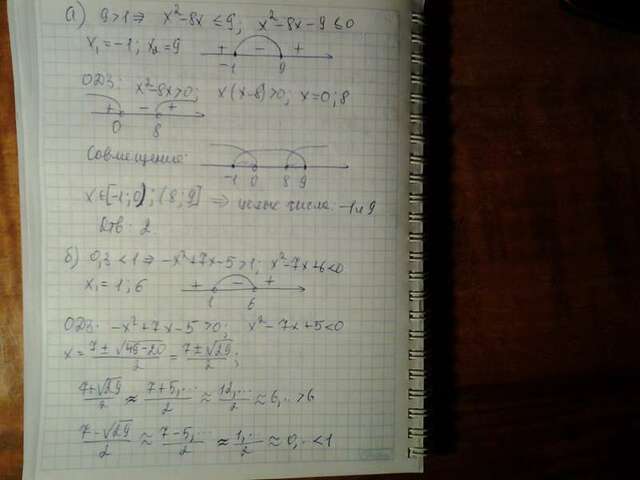 а) 9>1 ⇒ x²-8x ≤ 9; x²-8x-9 ≤ 0
x₁=-1; x₂=9
+ - +
-1 9
ОДЗ: x²-8x>0; x(x-8)>0; x=0; 8
+ - +
0 8
Совмещение:
-1 0 8 9
x∈[-1;0); (8;9] ⇒ целых числа: -1 и 9
Отв: 2.
б) 0,3<1 ⇒ -x²+7x-5>1; x²-7x+6<0
x₁=1; 6
+ - +
1 6
ОДЗ: -x²+7x-5>0; x²-7x+5<0
x= (7±√49-20)/2 = (7±√29)/2;
(7+√29)/2 ≈ (7+5,...)/2 ≈ (12,...)/2 ≈ 6,..>6
(7-√29)/2 ≈ (7-5,...)/2 ≈ (1,...)/2 ≈ 0,..<1